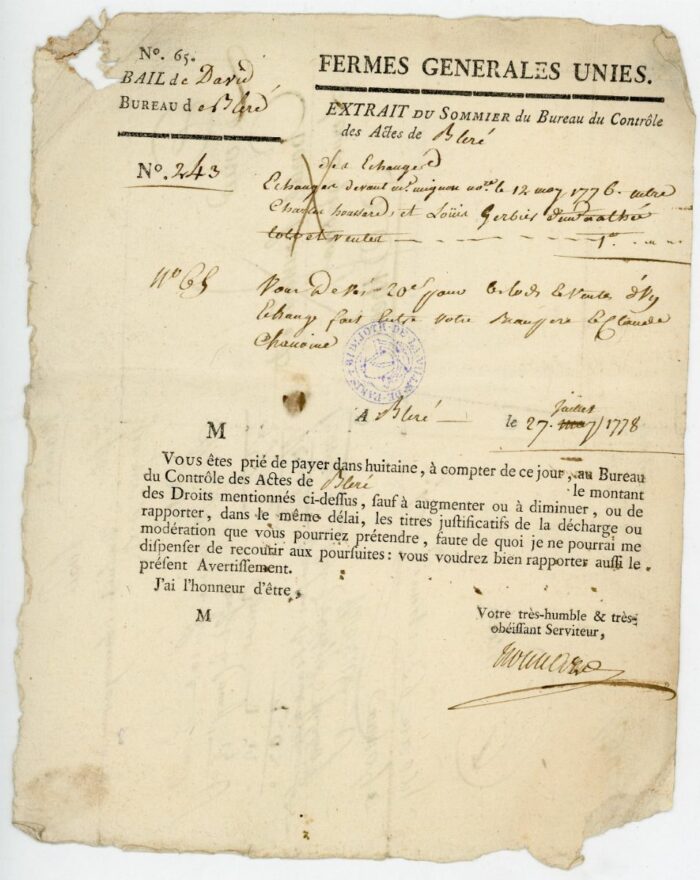 No. 65.
BAIL de David
BUREAU de Bleré
FERMES GENERALES UNIES.
EXTRAIT DU SOMMIER du Bureau du Contrôle
des Actes de Bleré
No. 243
des Echanges
Echanges devant me. mignon no.re le 12 may 1776. entre
Charles houssard et Loüis Gerbier
lods et ventes 1
No 65 Pour De 20e pour le lods et vente d'un
Echange fait Entre votre Beaupere et Claude
Chanoine
BIBLIOTH. DE LA VILLE DE PARIS
A Bleré le 27 juillet may 1778
M
VOUS êtes prié de payer dans huitaine, à compter de ce jour, au Bureau
du Contrôle des Actes de Bleré le montant
des Droits mentionnés ci-dessus, sauf à augmenter ou à diminuer, ou de
rapporter, dans le même délai, les titres justificatifs de la décharge ou
modération que vous pourriez prétendre, faute de quoi je ne pourrai me
dispenser de recourir aux poursuites: vous voudrez bien rapporter aussi le
présent Avertissement.
J'ai l'honneur d'être,
M
Votre très-humble & très-
obéissant Serviteur,